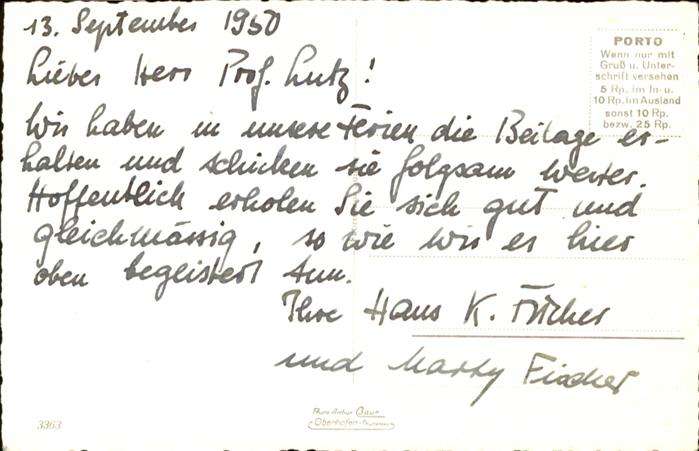 13. September 1950
PORTO
Wenn nur mit
Gruß u. Unter-
schrift versehen
5 Rp. im In- u.
10 Rp. im Ausland
sonst 10 Rp.
bezw. 25 Rp.
Lieber Herr Prof. Lutz!
Wir haben in unsere Ferien die Beilage er-
halten und schicken sie folgsam weiter.
Hoffentlich erholen Sie sich gut und
gleichmässig, so wie wir es hier
oben begeistert tun.
Ihre Hans K. Fischer
und Marty Fischer
3363
Gaur
Oberhofen-Thunersee